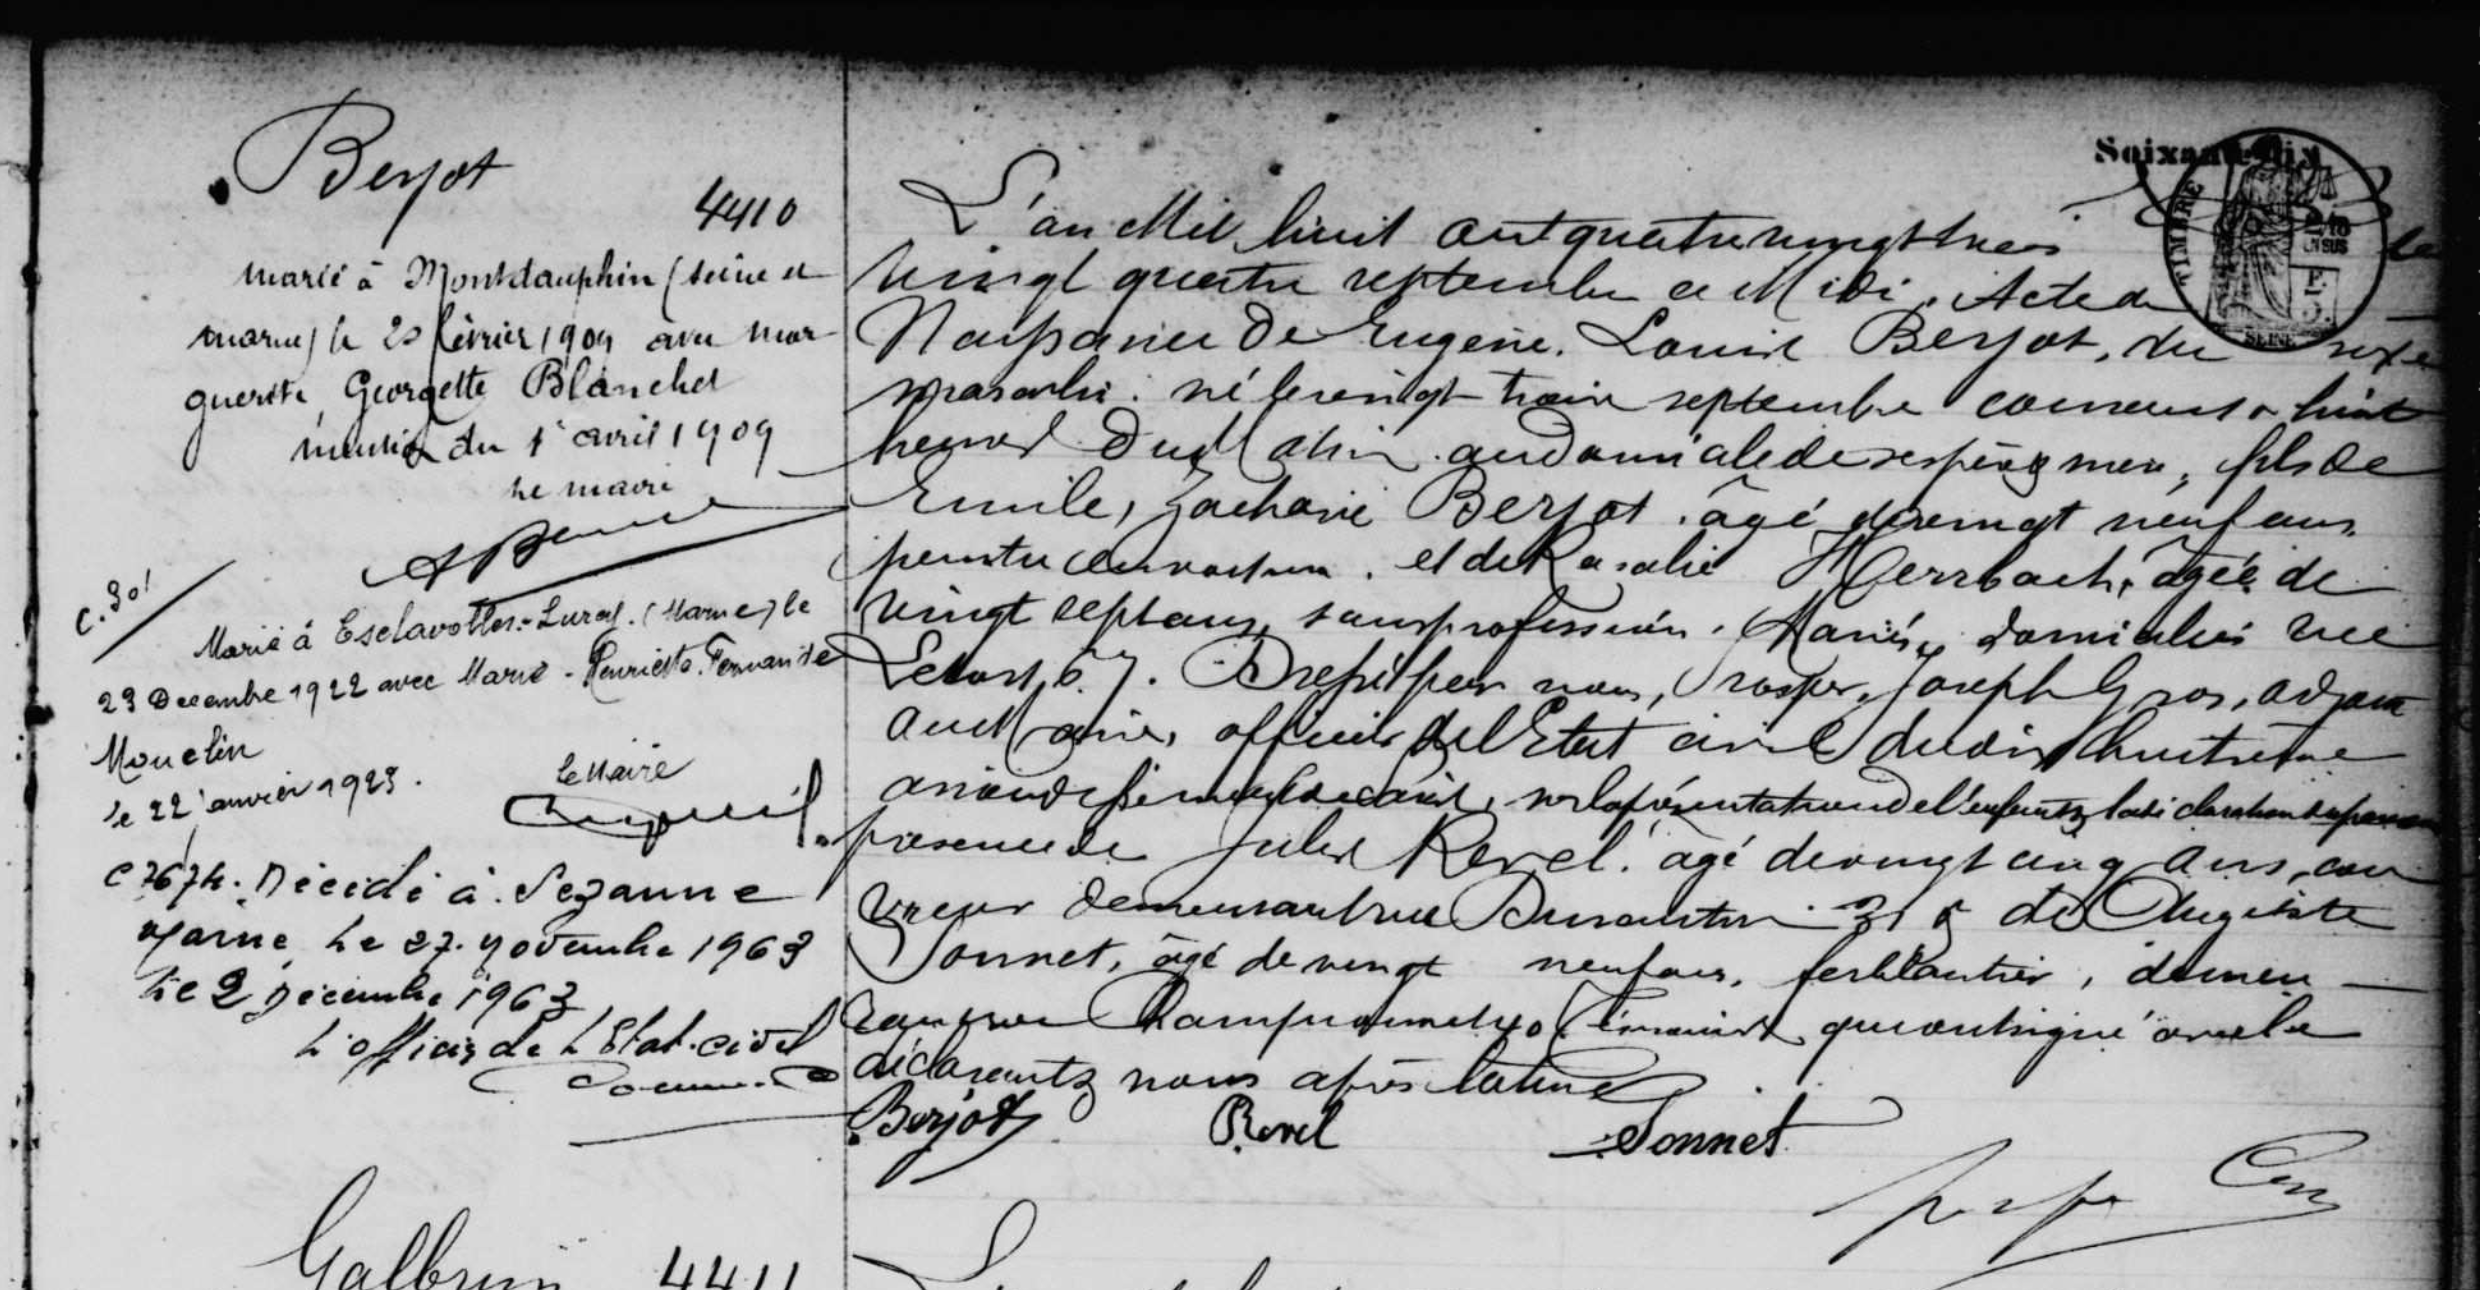 Berjot
4410
marié à Montdauphin (seine et
marne) le 20 février 1909 avec Mar
guerite, Georgette Blanchet
mention du 1er avril 1909
Le maire
C. 301
Marié à Esclavolles-Lurey. (Marne) le
23 Decembre 1922 avec Marie-Henriette-Fernande
Mouelin
le 22 janvier 1923.
Le Maire
C 7674. Décédé à Sezanne
Marne le 27 novembre 1963
Le 2 Décembre 1963
L'officier de l'Etat-civil
Galbrun
4411
Soixante-dix
TIMBRE
SEINE
L'an Mil huit cent quatre vingt trois le
vingt quatre septembre a Midi. Acte de
Naissance de Eugène, Louis Berjot, du sexe
masculin. né le vingt trois septembre courant a huit
heures du Matin au domicile de ses père & mère, fils de
Emile, Zacharie Berjot. âgé de vingt neuf ans,
peintre en voitures. et de Rosalie Herrbach, âgée de
vingt sept ans, sans profession. Mariés, domiciliés rue
Letort, 67. Dressé par nous, Prosper, Joseph Gros, adjoint
au Maire, officier de l'Etat civil du dix huitième
arrondissement de Paris, sur la présentation de l'enfant & la déclaration du père en
présence de Jules Revel. âgé de vingt cinq ans, cou
vreur demeurant rue 31 & de Auguste
Sonnet, âgé de vingt neuf ans, ferblantier, demeu
rant rue Championnet 40 témoins qui ont signé avec le
déclarant & nous après lecture
Berjot Revel Sonnet